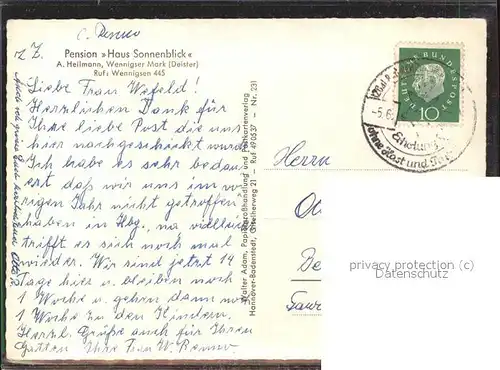 C. Renno
z. Z.
Pension »Haus Sonnenblick«
A. Heilmann, Wennigser Mark (Deister)
Ruf: Wennigsen 445
Liebe Frau Wefeld!
Herzlichen Dank für
Ihre liebe Post die uns
hier nachgeschickt wurde
Ich habe es sehr bedau-
ert daß wir uns im vo-
rigen Jahr nicht getroffen
haben in Hbg., na vielleicht
trifft es sich noch mal
wieder. Wir sind jetzt 14
Tage hier u. bleiben noch
1 Woche u. gehen dann noch
1 Woche zu den Kindern.
Herzl. Grüße auch für Ihren
Gatten Ihre Frau W. Renno
Walter Adam, Papiergroßhandlung und Postkartenverlag
Hannover-Badenstedt, Günther weg 21 - Ruf 490537 - Nr. 231
DEUTSCHE BUNDESPOST
10
-5.6.
Erholung
ohne Hast und
Herrn
privacy protection (c)
Datenschutz